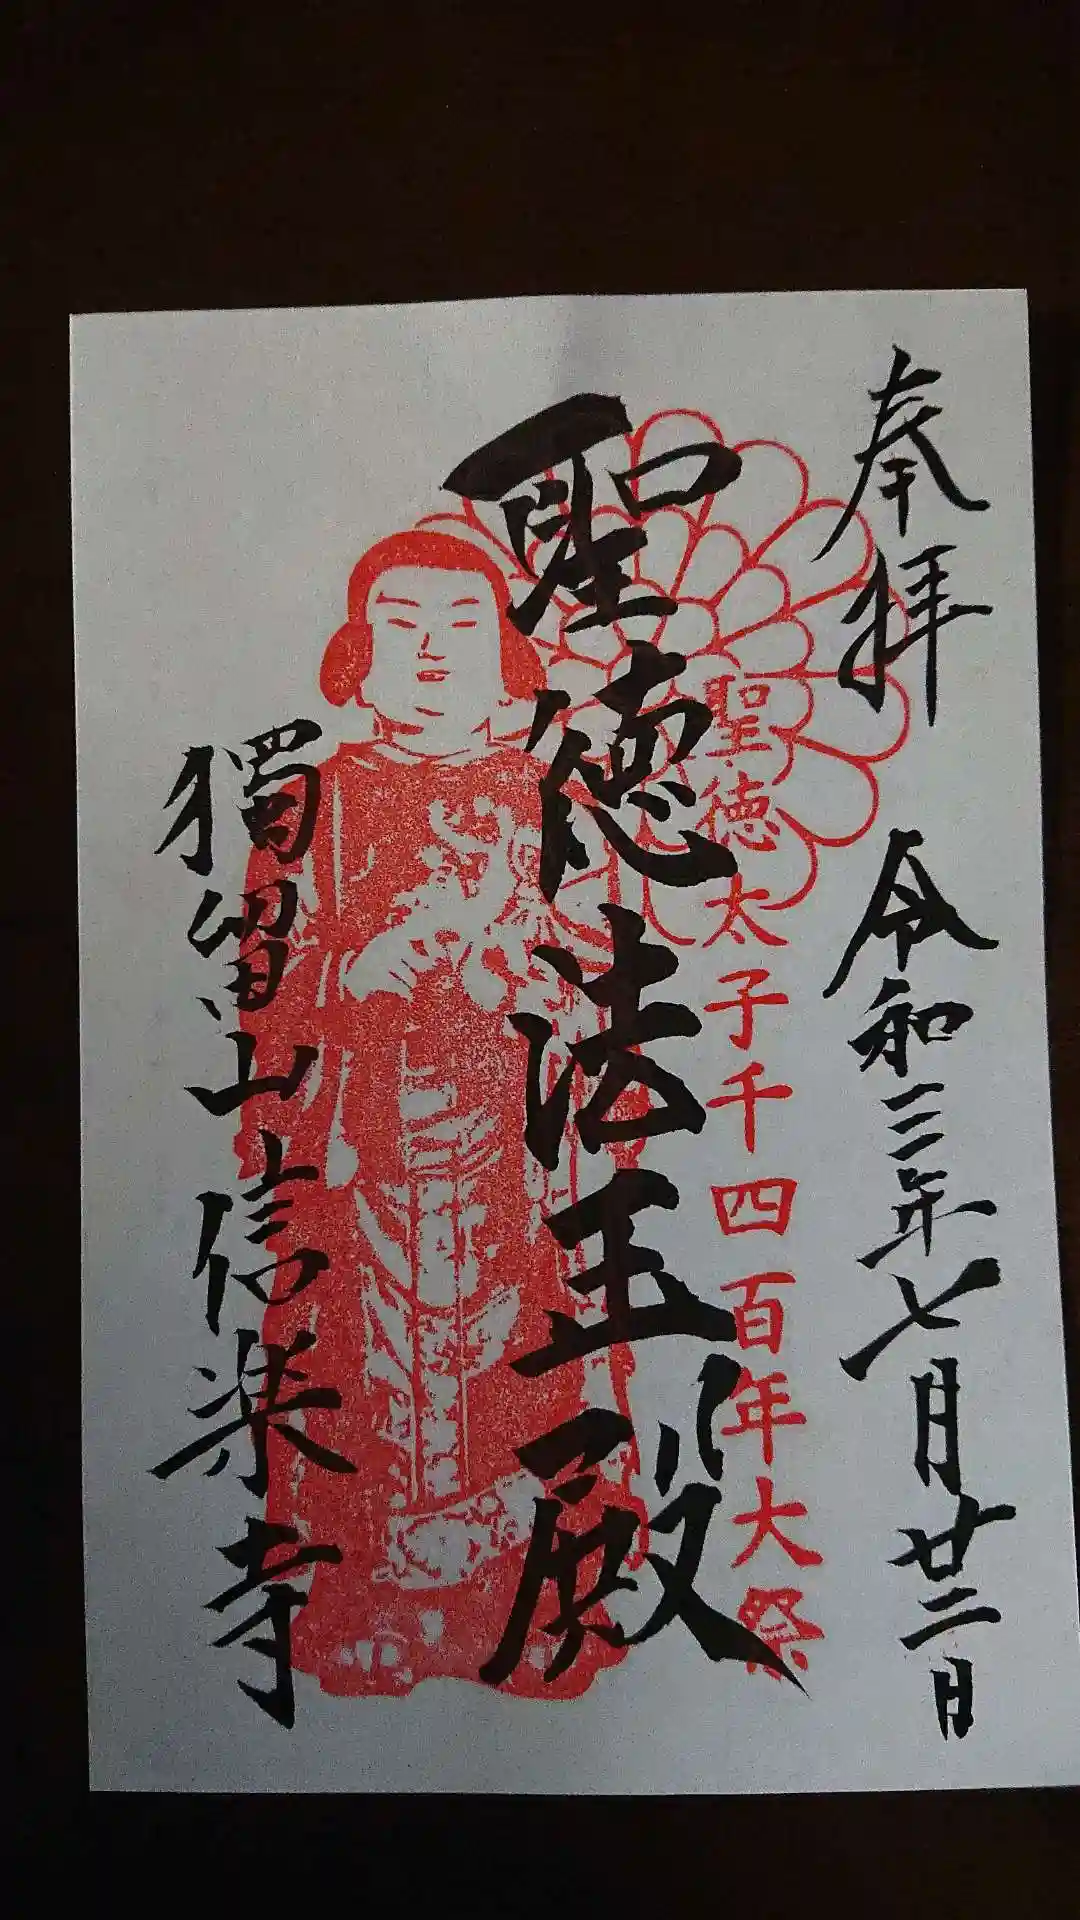 奉拝
令和三年七月廿二日
聖徳太子千四百年大祭
聖徳法王殿
獨留山信楽寺